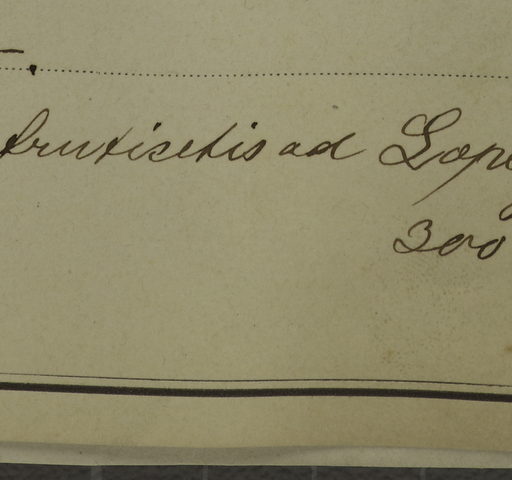 fruticetis ad Lop
300